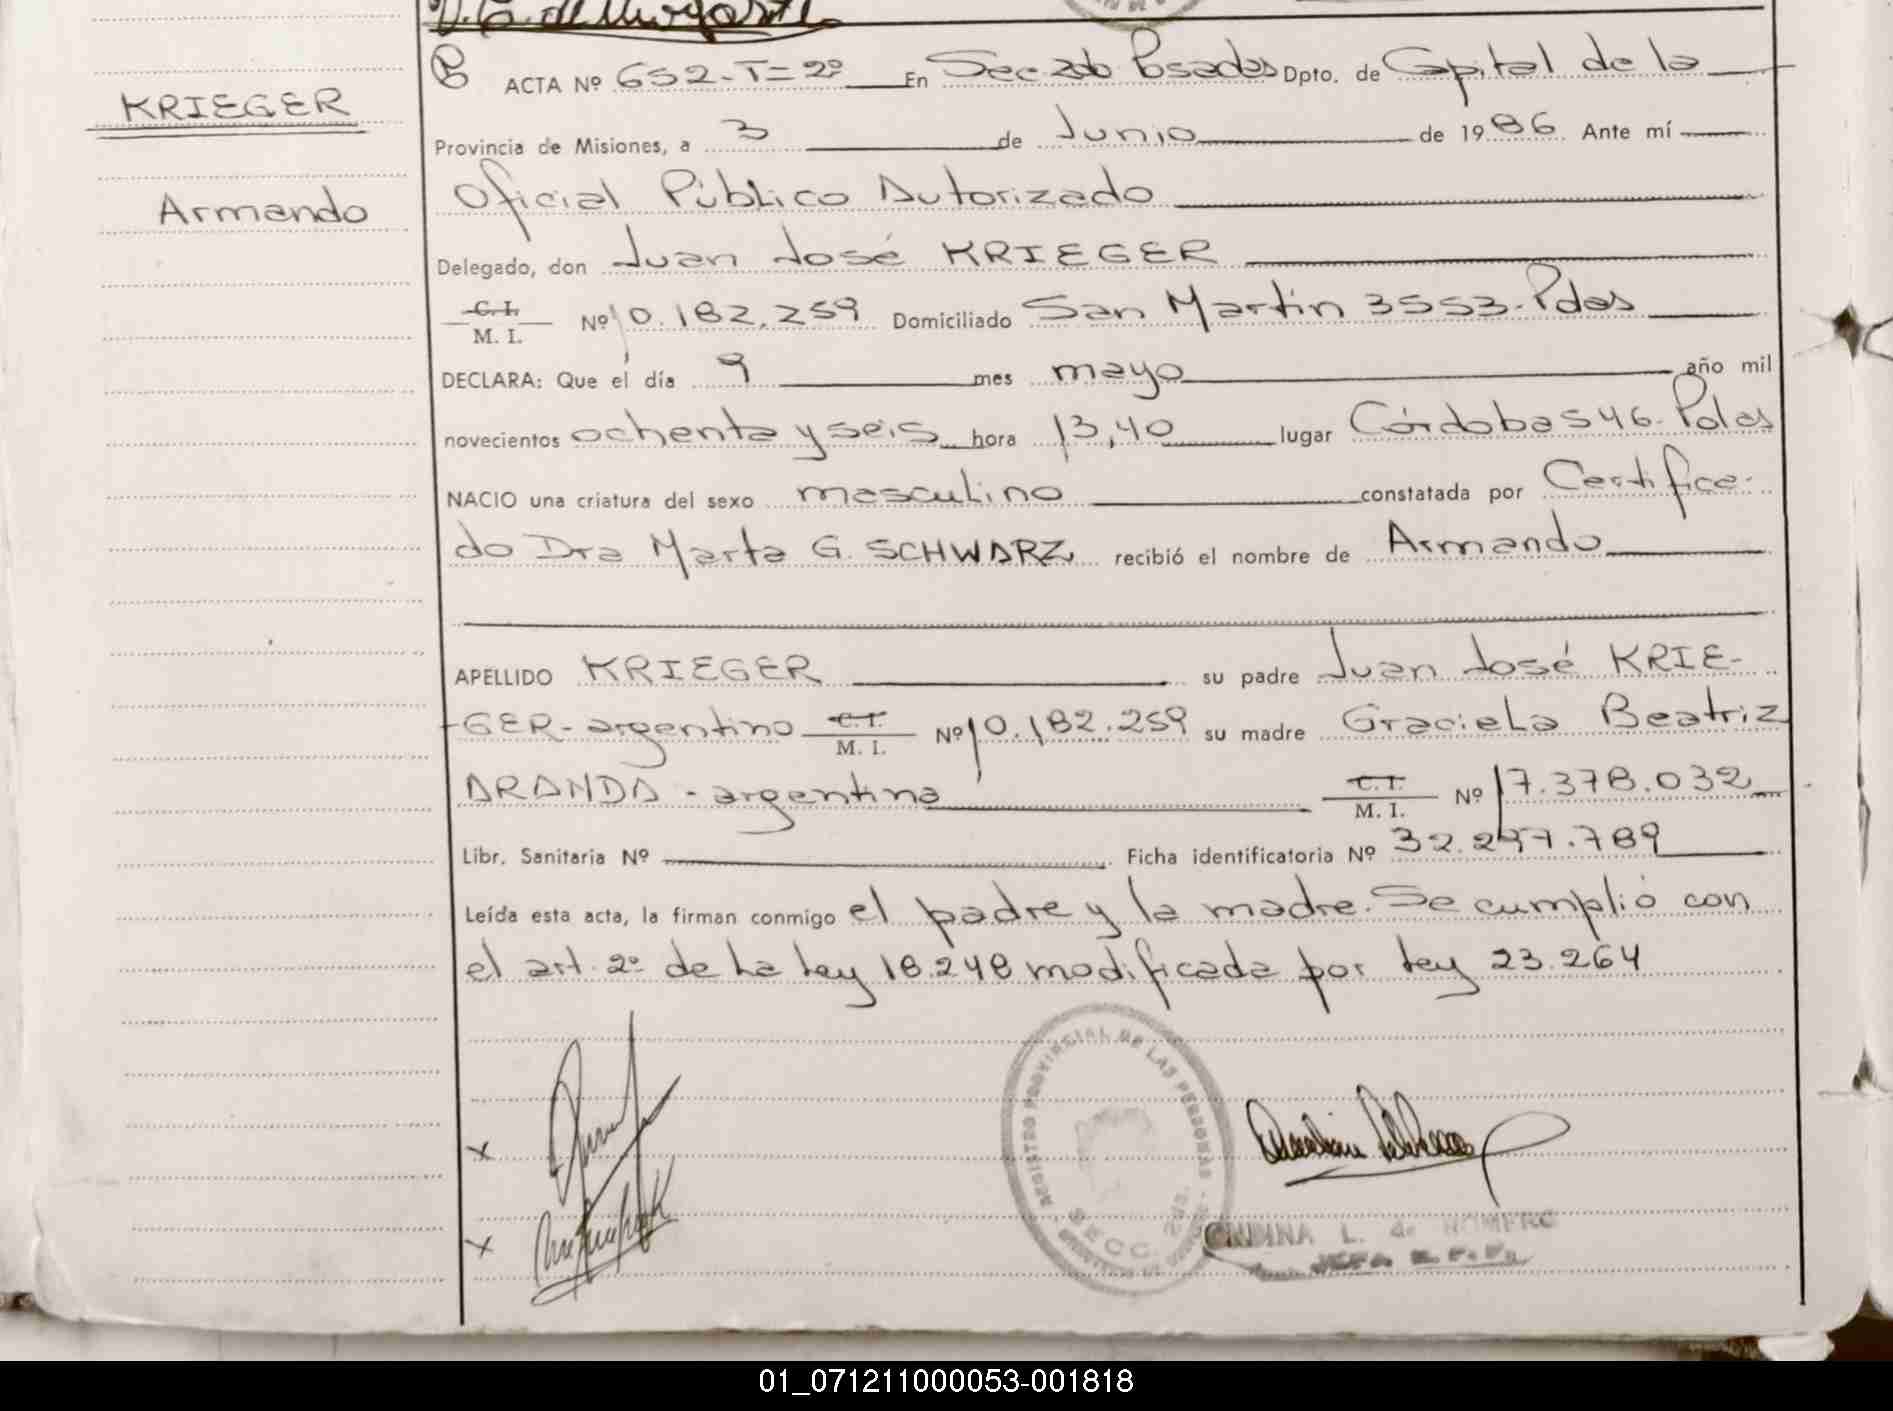 KRIEGER
Armando
ACTA Nº 652-T=2º En Secc 2da Posadas Dpto. de Capital de la
Provincia de Misiones, a 3 de Junio de 1986 Ante mí
Oficial Público Autorizado
Delegado, don Juan José KRIEGER
C.I. M. I. Nº 10.182.259 Domiciliado San Martín 3553-Pdas
DECLARA: Que el día 9 mes mayo año mil
novecientos ochenta y seis hora 13,40 lugar Córdoba 546-Pdas
NACIO una criatura del sexo masculino constatada por Certifica-
do Dra Marta G. SCHWARZ recibió el nombre de Armando
APELLIDO KRIEGER su padre Juan José KRIE-
GER-argentino C.I. M. I. Nº 10.182.259 su madre Graciela Beatriz
ARANDA - argentina C.I. M. I. Nº 17.378.032
Libr. Sanitaria Nº Ficha identificatoria Nº 32.297.789
Leída esta acta, la firman conmigo el padre y la madre. Se cumplió con
el art. 2º de la Ley 18.248 modificada por Ley 23.264
REGISTRO PROVINCIAL DE LAS PERSONAS
SECC. 2da.
x
x
ONDINA L. de ROMERO
01_071211000053-001818